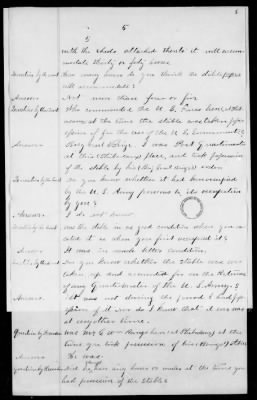 5
5
with the sheds attached thereto it will accom-
modate thirty or forty horses
Question by the Court How many horses do you think the stable proper
will accommodate?
Answer Not more than four or five.
Question by the Court Who commanded the U. S. Forces here at that
time at the time the stable was taken pos-
session of for the use of the U. S. Government?
Answer Brig Genl I was Post Quartermaster
at this place, and took possession
of the stable by his (Brig Genl) order
Question by the Court Do you know whether it had been occupied
by the U. S. Army previous to its occupation
by you?
Answer I do not know.
Question by the Court Was the stable in as good condition when you va-
cated it as when you first occupied it?
Answer It was in much better condition.
Question by the Court Do you know whether the stable was ever
taken up and accounted for on the Returns
of any Quartermaster of the U. S. Army?
Answer It was not during the period I had pos-
session of it nor do I know that it ever was
at any other time.
Question by Claimant Was Mr. here at at the
time you took possession of his Stable
Answer He was
Question by Claimant Did he have any horses or mules at the time you
took possession of the stable